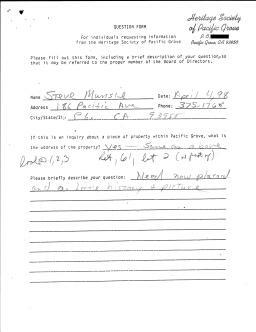 QUESTION FORM
Heritage Society
of Pacific Grove
P.O.
Pacific Grove, CA 93950
For individuals requesting information
from the Heritage Society of Pacific Grove
Please fill out this form, including a brief description of your question, so
that it may be referred to the proper member of the Board of Directors.
Name Steve Date: April 4, 98
Address 186 Pacific Ave Phone: 375-
City/State/Zip P.G. CA 93950
If this is an inquiry about a piece of property within Pacific Grove, what is
the address of the property? yes - Same as above
1,2,3 lot 2
Please briefly describe your question: Need
history & picture